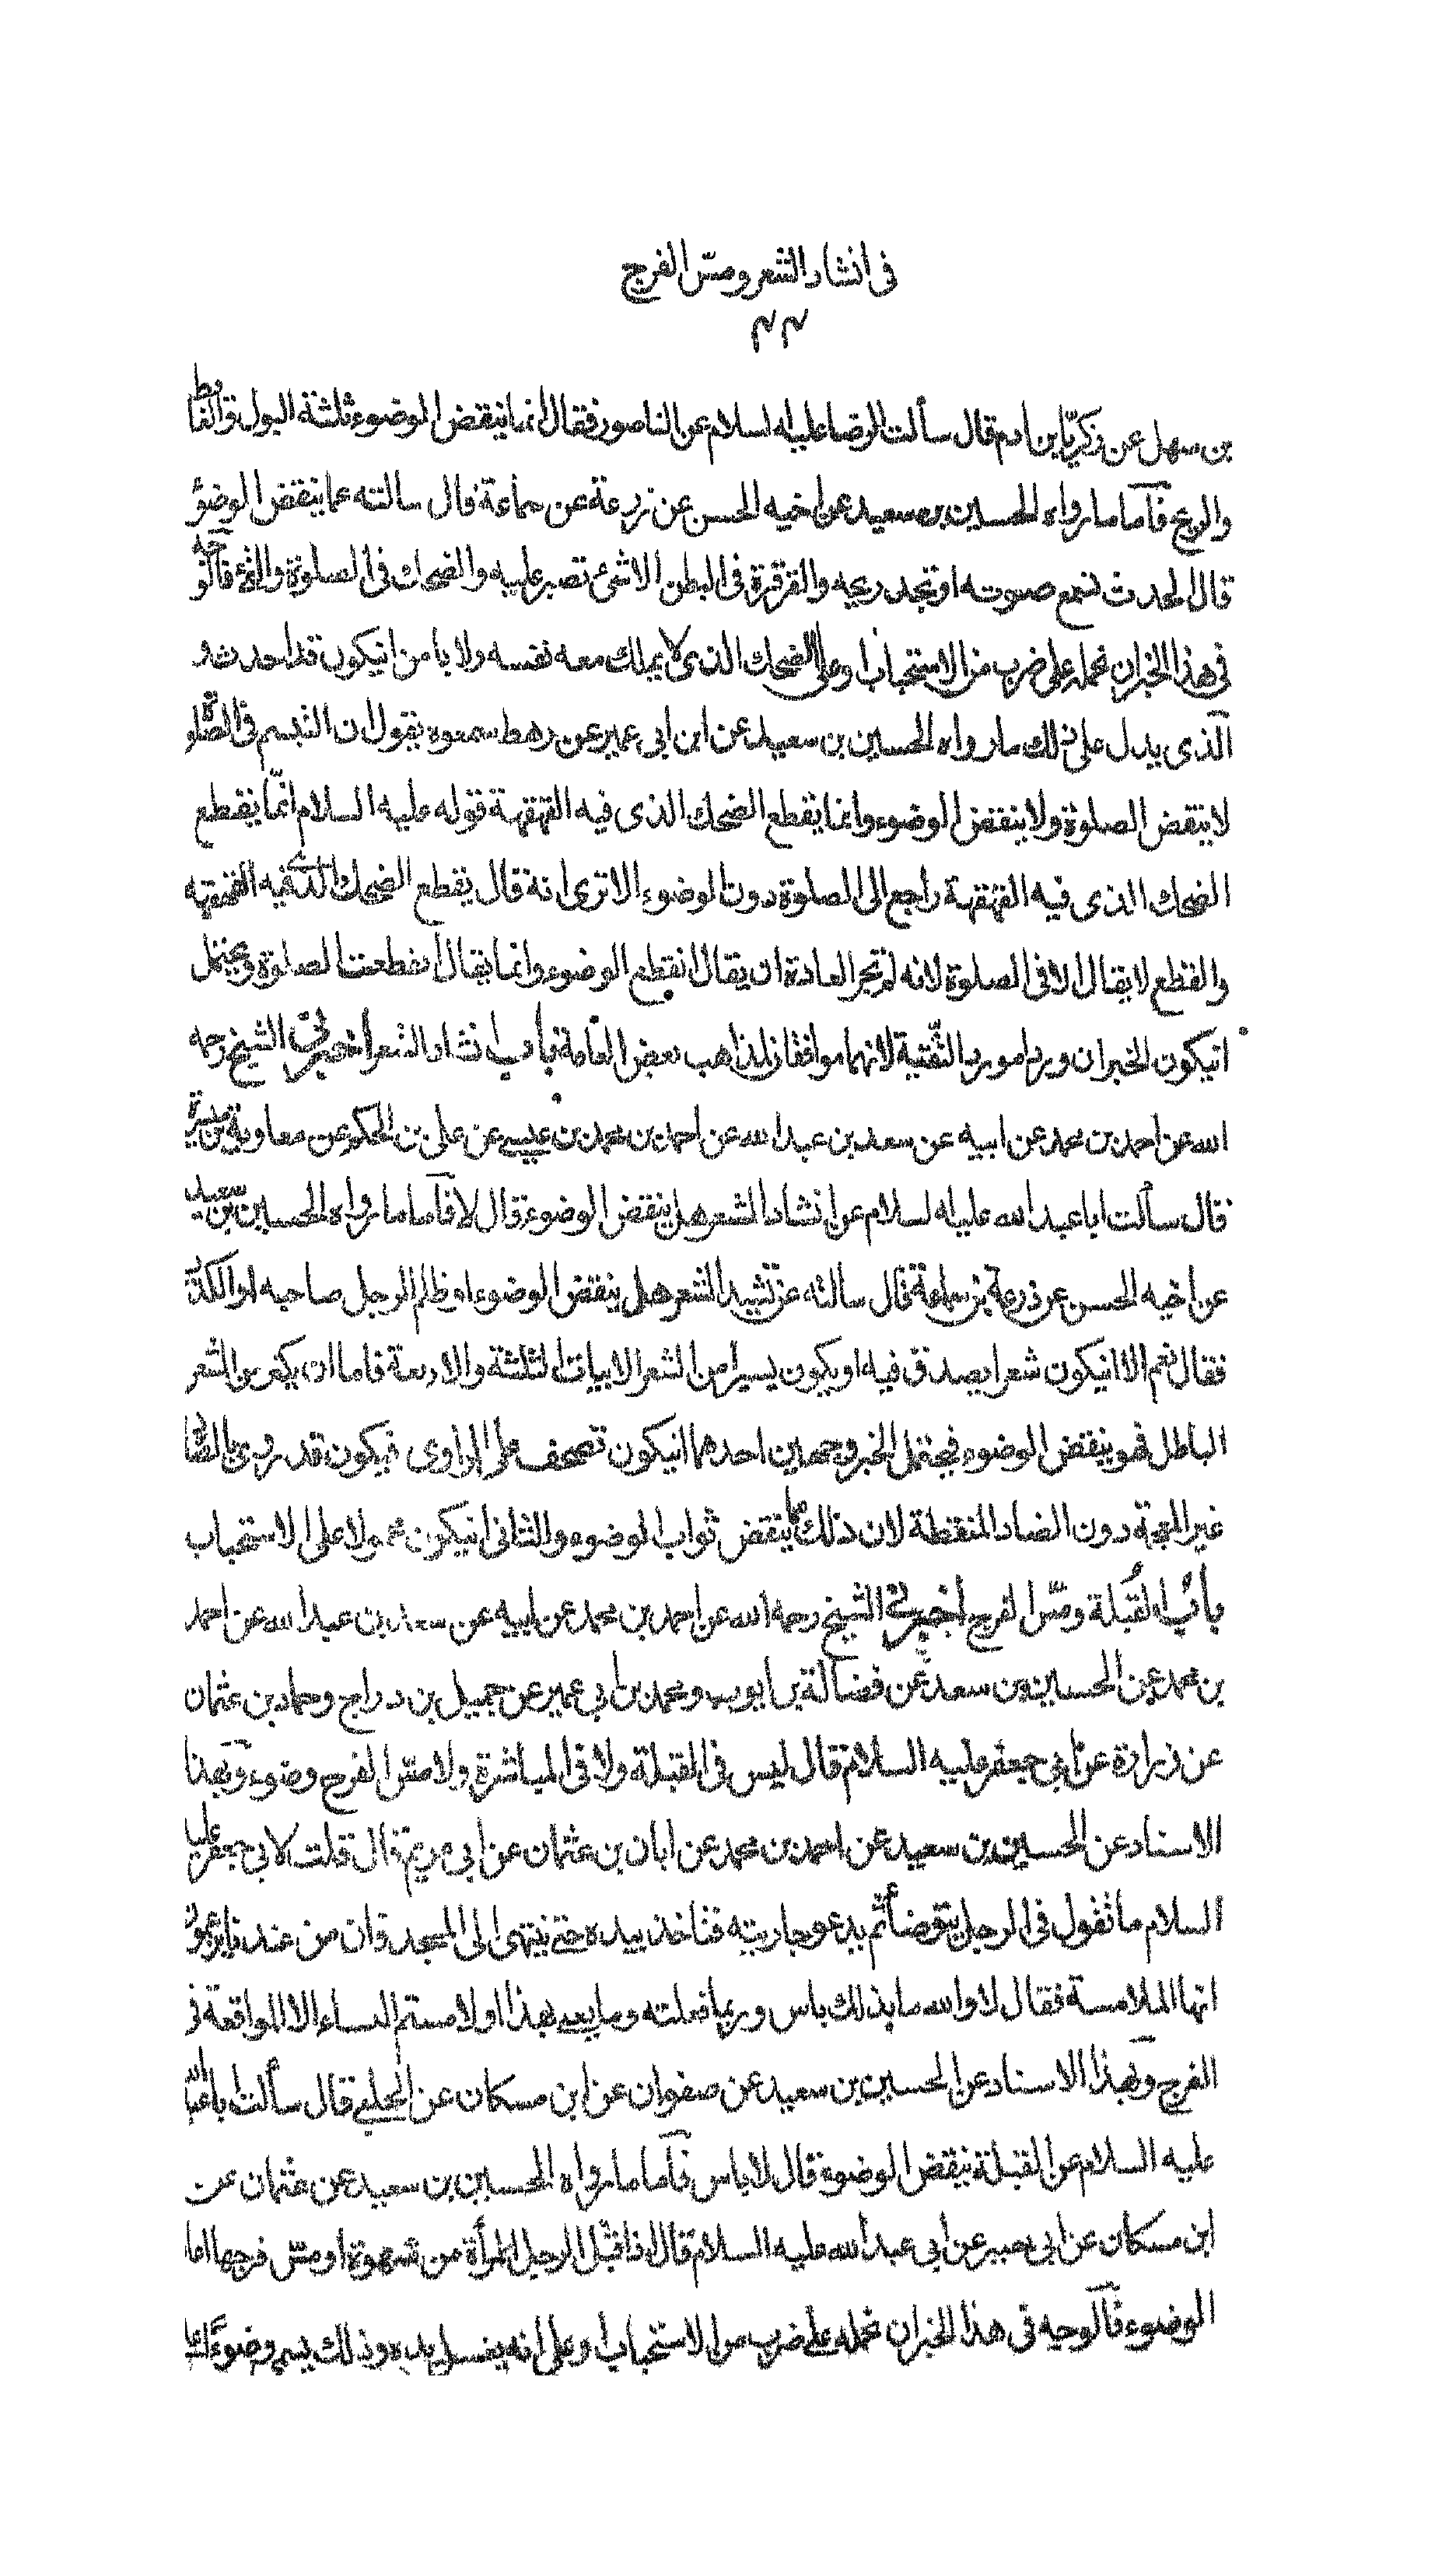 فى انشاد الشعر ومسّ الفرج
٤٤
بن سهل عن زكريّا بن ادم قال سألت الرضا عليه السلام عن الناصور فقال انما ينقض الوضوء ثلثة البول والغائط
والريح فآما ما رواه الحسين بن سعيد عن اخيه الحسن عن زرعة عن سماعة قال سالته عما ينقض الوضؤ
قال الحدث تسمع صوته او تجد ريحه والقرقرة فى البطن الا شئ تصبر عليه والضحك فى الصلوة والقئ فالوجه
فى هذا الخبران نحمله على ضرب من الاستحباب او على الضحك الذى لا يملك معه نفسه ولا يامن ان يكون قد احدث و
الذى يدل على ذلك ما رواه الحسين بن سعيد عن ابن ابى عمير عن رهط سمعوه يقول ان التبسم فى الصّلوة
لا ينقض الصلوة ولا ينقض الوضوء وانما يقطع الضحك الذى فيه القهقهة قوله عليه السلام انّما يقطع
الضحك الذى فيه القهقهة راجع الى الصلوة دون الوضوء الا ترى انه قال يقطع الضحك الذى فيه القهقهه
والقطع لا يقال الا فى الصلوة لانه لم تجر العادة ان يقال انقطع الوضوء وانما يقال انقطعت الصلوة ويحتمل
ان يكون الخبران وردا مورد التّقية لانهما موافقان لمذاهب بعض العامة بأب انشاد الشعر أخبرنى الشيخ رحمه
الله عن احمد بن محمد عن ابيه عن سعد بن عبد الله عن احمد بن محمد بن عيسى عن على بن الحكم عن معاوية بن ميسرة
قال سألت ابا عبد الله عليه السلام عن انشاد الشعر هل ينقض الوضوء قال لا فآما ما رواه الحسين بن سعيد
عن اخيه الحسن عن زرعة بن سماعة قال سالته عن تشييد الشعر هل ينقض الوضوء او ظلم الرجل صاحبه او الكذب
فقال نعم الا ان يكون شعرا يصدق فيه او يكون يسيرا من الشعر الابيات الثلثة والاربعة فاما ان يكثر من الشعر
الباطل فهو ينقض الوضوء فيحتمل الخبر وجهين احدهما ان يكون تصحف على الراوى فيكون قد روى بالصّاد
غير المعجمة دون الضاد المنقطة لان ذلك مما ينقض ثواب الوضوء والثانى ان يكون محمولا على الاستحباب
بأب القبلة ومسّ الفرج أخبرنى الشيخ رحمه الله عن احمد بن محمد عن ابيه عن سعد بن عبد الله عن احمد
بن محمد عن الحسين بن سعد عن فضالة بن ايوب ومحمد بن ابى عمير عن جميل بن دراج وحماد بن عثمان
عن زرارة عن ابى جعفر عليه السلام قال ليس فى القبلة ولا فى المباشرة ولا مسّ الفرج وضوء وبهذا
الاسناد عن الحسين بن سعيد عن احمد بن محمد عن ابان بن عثمان عن ابى مريم قال قلت لابى جعفر عليه
السلام ما تقول فى الرجل يتوضأ ثم يدعو جاريته فتاخذ بيده حتى ينتهى الى المسجد فان من عندنا يزعمون
انها الملامسة فقال لا والله ما بذلك باس وربما فعلته وما يعنى بهذا او لامستم النساء الا المواقعة فى
الفرج وبهذا الاسناد عن الحسين بن سعيد عن صفوان عن ابن مسكان عن الحلبى قال سألت ابا عبد الله
عليه السلام عن القبلة ينقض الوضوء قال لا باس فآما ما رواه الحسين بن سعيد عن عثمان عن
ابن مسكان عن ابى بصير عن ابى عبد الله عليه السلام قال اذا قبّل الرجل المرأة من شهوة او مسّ فرجها اعاد
الوضوء فآلوجه فى هذا الخبران نحمله على ضرب من الاستحباب او على انه يغسل يده وذلك يسمى وضوءًا